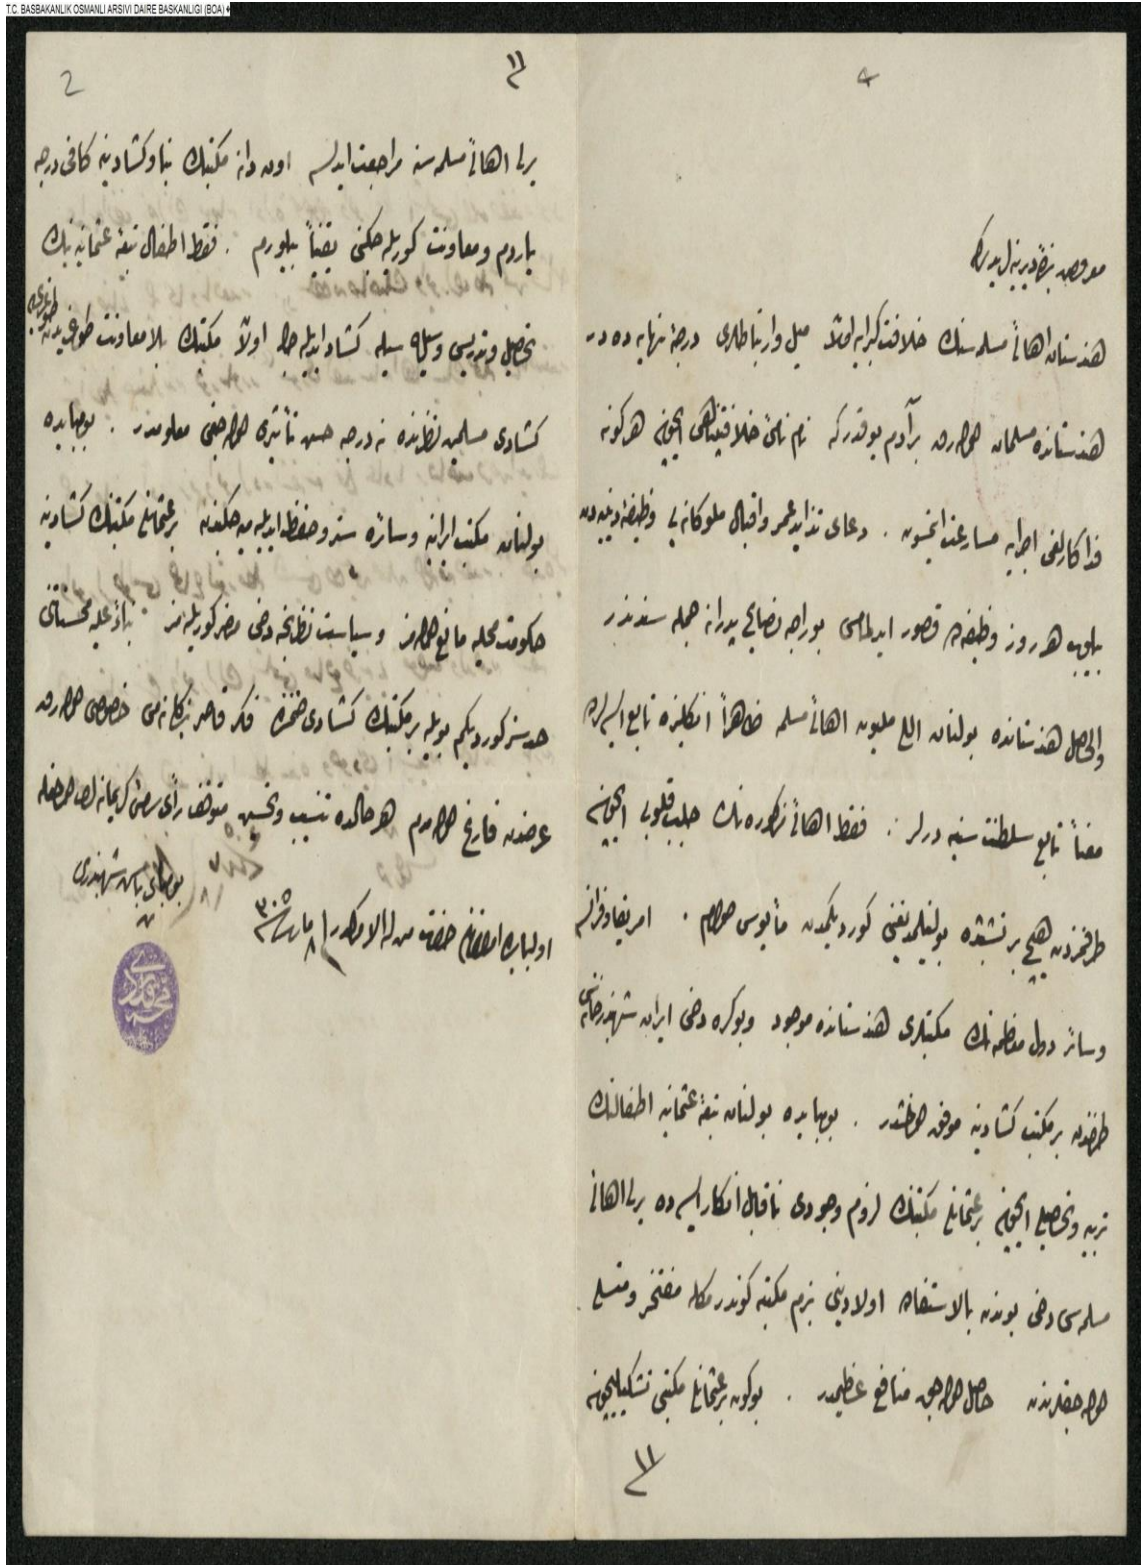 T.C. BASBAKANLIK OSMANLI ARSIVI DAIRE BASKANLIGI (BOA)
معروض بنده ديرينه لريدركه
هندستان اهالئ مسلمه سنك خلافت كبرايه اولان ميل وارتباطلرى درجۀ نهايه ده در
هندستانده مسلمان اوله رق بر آدم يوقدركه نام نامئ خلافتپناهى ايچون هركونه
فداكارلغى اجرايه مسارعت ايتمسون . دعاى تزايد عمر واقبال ملوكانه يى وظيفۀ دينيه دن
بيلوب هر روز وظيفه ده قصور ايدلمامسى بوراجه نصايح پدرانه جمله سندندر
والحاصل هندستانده بولنان اللى مليون اهالئ مسلمه ظاهراً انكليزه تابع ايسه لرده
معناً تابع سلطنت سنيه درلر . فقط اهالئ مذكوره نك جلب قلوبى ايچون
طرفمزدن هيچ بر تشبثده بولنيلمديغنى كورديكمدن مأيوس اولدم . امريقا وفرانسه
وسائر دول معظمه نك مكتبلرى هندستانده موجود وبوكره دخى ايران شهبندرخانه سى
طرفندن بر مكتب كشادينه موفق اولمشدر . بومبايده بولنان تبعۀ عثمانيه اطفالنك
تربيه وتحصيلى ايچون بر عثمانلى مكتبنك لزوم وجودى ناقابل انكار ايسه ده يرلى اهالئ
مسلمه سى دخى بوندن بالاستفاده اولادينى بزم مكتبه كوندرمكله مفتخر ومتسلى
اوله جقلرندن حاصل اوله جق منافع عظيمدر . بوكون بر عثمانلى مكتبى تشكيلى ايچون
٢
يرلى اهالئ مسلمه سنه مراجعت ايدلسه اون دانه مكتبك بنا وكشادينه كافى درجه
ياردم ومعاونت كوريله جكنى يقيناً بيلورم . فقط اطفال تبعۀ عثمانيه نك
تحصيل وتدريسى وسيله سيله كشاد ايديله جك اولان مكتبك بلا معاونت طوغريدن طوغرى يه
كشادى مسلمين نظرنده نه درجه حسن تأثيرى اوله جغى معلومدر . بومبايده
بولنان مكتب ايرانيه وسائره ستر وحفظ ايديله ميه جكندن بر عثمانلى مكتبنك كشادينه
حكومت محليه مانع اوله مز وسياست نظرنجه دخى مضر كوريله مز بناءً عليه محسناتنى
حدسز كورديكم بويله بر مكتبك كشادى ضمننده فكر قاصر بندكانه مى خصوصى اوله رق
عرضدن فارغ اوله مدم هر حالده تنسيب وتحسين متوقف رأى رصين كريمانه لرى اولمغله
اولبابده امر وفرمان حضرت من له الامركدر ٨ مارت سنه ٣٠٥
بومباى باش شهبندرى